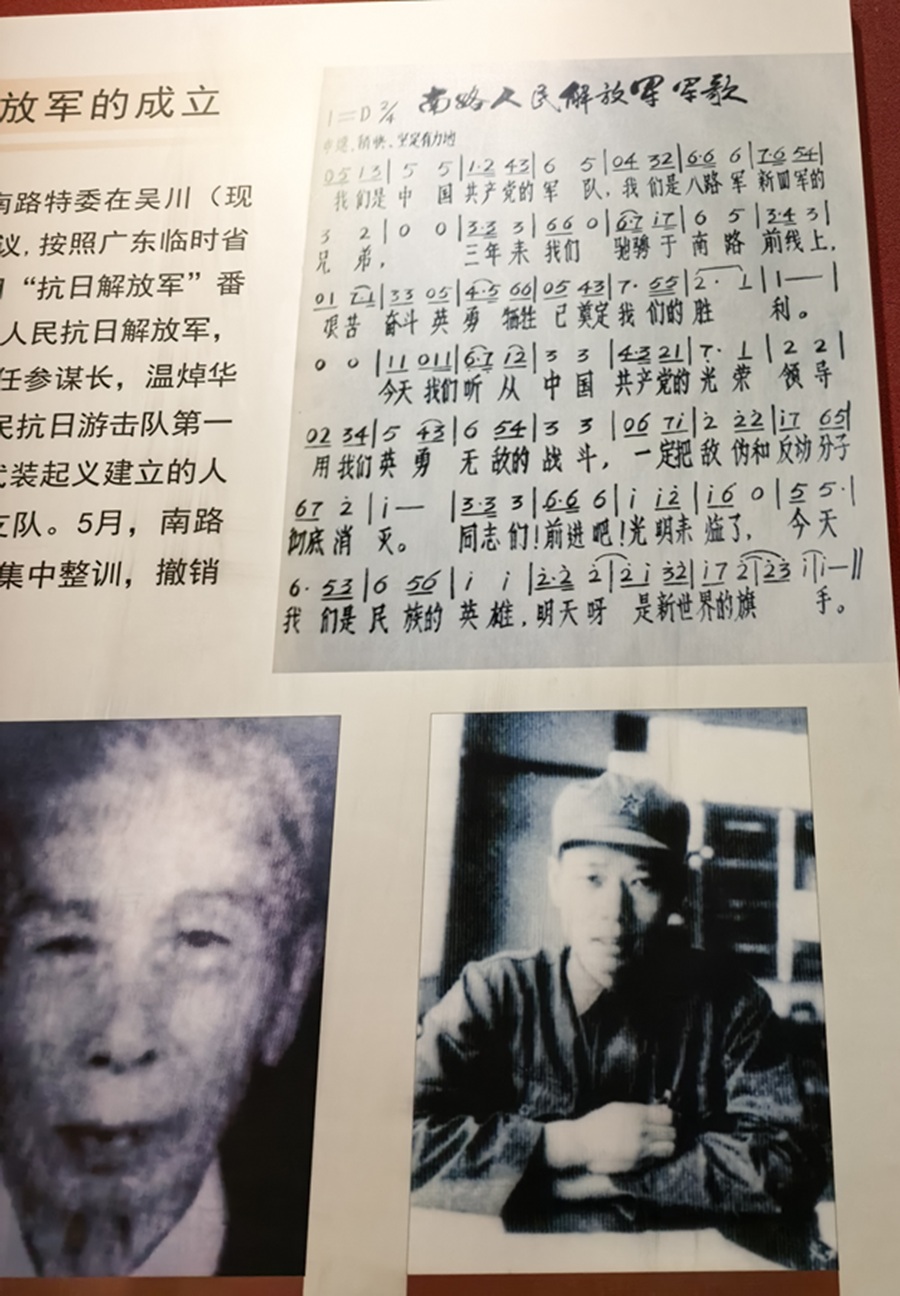 放军的成立
南路特委在吴川（现
议,按照广东临时省
“抗日解放军”番
人民抗日解放军，
任参谋长，温焯华
民抗日游击队第一
武装起义建立的人
支队。5月，南路
集中整训，撤销
南路人民解放军军歌
1=D 2/4
中速、轻快、坚定有力地
05 13 | 5 5 | 1·2 43 | 6 5 | 04 32 | 6·6 6 | 7·6 54 |
我们是中 国 共产党的军 队，我们是八路军 新四军的
3 2 | 0 0 | 3·3 3 | 66 0 | 6·7 i7 | 6 5 | 3·4 3 |
兄 弟， 三年来 我们 驰骋于南路 前线上，
01 7·1 | 33 05 | 4·5 66 | 05 43 | 7· 55 | 2· 1 | 1— |
艰苦 奋斗 英勇 牺牲 已奠定我 们的胜 利。
0 0 | 11 011 | 6·7 12 | 3 3 | 4·3 21 | 7· 1 | 2 2 |
今天 我们听 从 中国 共产党的光荣 领导
02 34 | 5 43 | 6 54 | 3 3 | 06 7i | 2 22 | i7 65 |
用我们英勇 无敌的战斗，一定把敌伪和反动分子
67 2 | i— | 3·3 3 | 6·6 6 | i i2 | i6 0 | 5 5· |
彻底消 灭。 同志们！前进吧！光明来临了， 今天
6· 53 | 6 56 | i i | 2·2 2 | 2 i 32 | i7 2 | 23 i | i— ‖
我 们是民 族的英雄，明天呀 是新世界的旗 手。